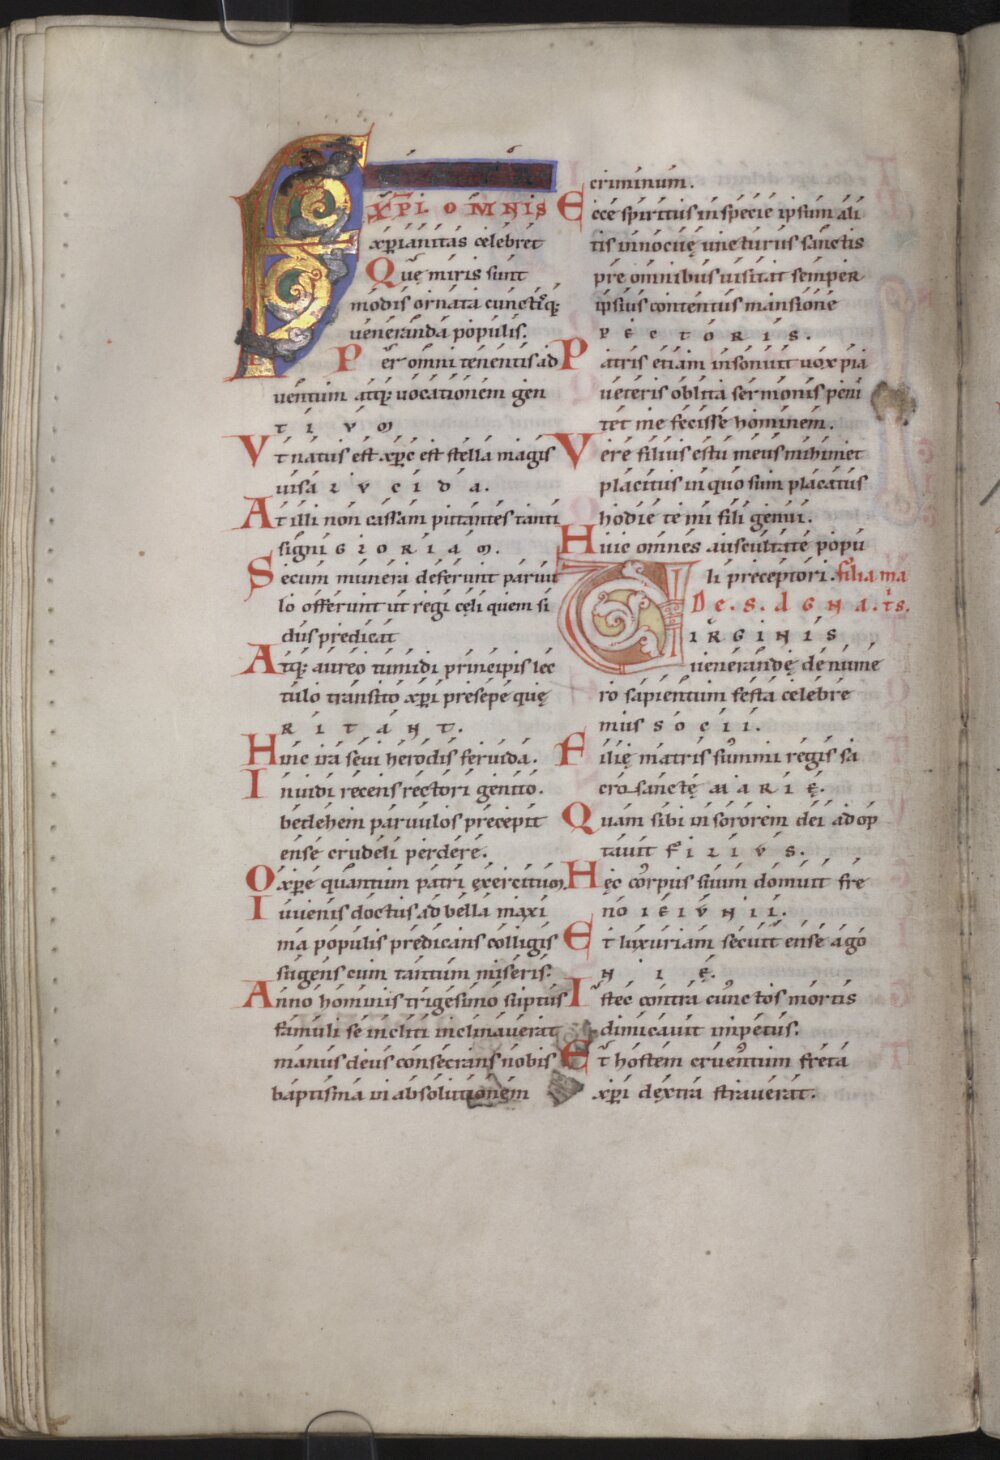 XPI OMNIS
xp̄ianitas celebret
Quę miris sunt
modis ornata cunctisq;
ueneranda populis.
Per omni tenentis ad
uentum atq; uocationem gen
TIUM
Vt natus est xp̄c est stella magis
uisa LUCIDA.
At illi non cassam putantes tanti
signi GLORIAM.
Secum munera deferunt paruu
lo offerunt ut regi cęli quem si
dus predicat
Atq; aureo tumidi principis lec
tulo transito xp̄i presepe quę
RITANT.
Hinc ira sęui herodis feruida.
Inuidi recens rectori genito.
bethlehem paruulos precepit
ense crudeli perdere.
O xp̄e quantum patri exercitum.
Iuuenis doctus ad bella maxi
ma populis predicans colligis
sugens cum tantum miseris.
Anno hominis trigesimo subtus
famuli se incliti inclinauerat
manus deus consecrans nobis
baptisma in absolutionem
criminum.
Ecce spiritus in specie ipsum ali
tis innocuę uncturus sanctis
pre omnibus uisitat semper
ipsius contentus mansione
PECTORIS.
Patris etiam insonuit uox pia
ueteris oblita sermonis peni
tet me fecisse hominem.
Vere filius es tu meus mihimet
placitus in quo sum placatus
hodie te mi fili genui.
Huic omnes auscultate popu
li preceptori. filia ma
De. S. AGNA. tĩs.
VIRGINIS
uenerandę de nume
ro sapientum festa celebre
mus SOCII.
Filię matris summi regis sa
cro sanctę MARIĘ.
Quam sibi in sororem dei adop
tauit FILIUS.
Hęc corpus suum domuit fre
no IEIUNII.
Et luxuriam secuit ense ago
NIĘ.
Istec contra cunctos mortis
dimicauit impetus.
Et hostem cruentum freta
xp̄i dextra strauerat.